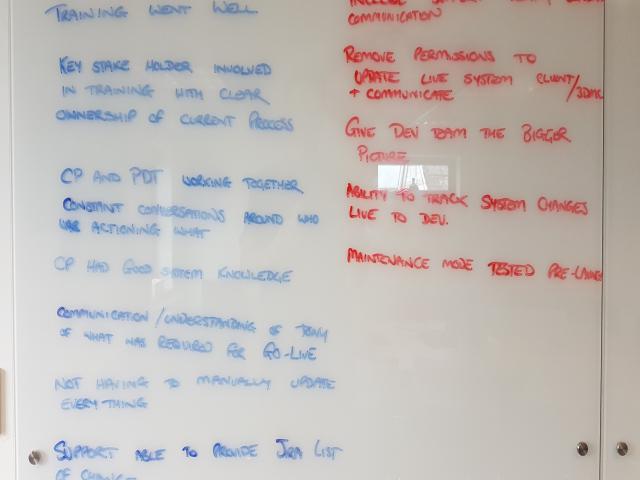 TRAINING WENT WELL
KEY STAKE HOLDER INVOLVED
IN TRAINING WITH CLEAR
OWNERSHIP OF CURRENT PROCESS
CP AND PDT WORKING TOGETHER
CONSTANT CONVERSATIONS AROUND WHO
WAS ACTIONING WHAT
CP HAD GOOD SYSTEM KNOWLEDGE
COMMUNICATION/UNDERSTANDING OF TONY
OF WHAT WAS REQUIRED FOR GO-LIVE
NOT HAVING TO MANUALLY UPDATE
EVERYTHING
SUPPORT ABLE TO PROVIDE JIRA LIST
OF
COMMUNICATION
REMOVE PERMISSIONS TO
UPDATE LIVE SYSTEM CLIENT/
+ COMMUNICATE
GIVE DEV TEAM THE BIGGER
PICTURE
ABILITY TO TRACK SYSTEM CHANGES
LIVE TO DEV.
MAINTENANCE MODE TESTED PRE-LAUNCH